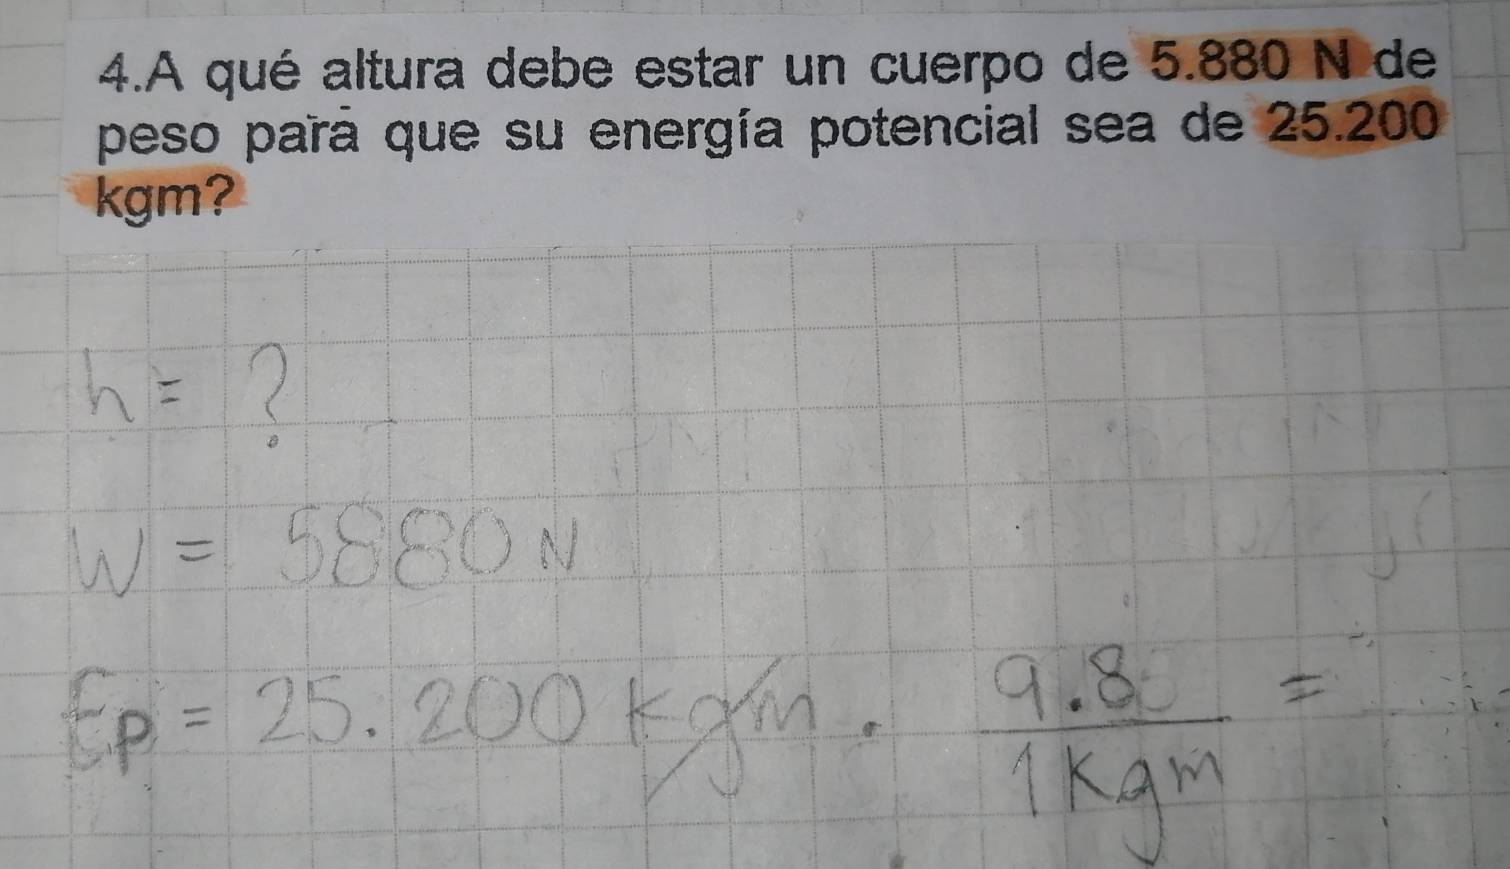 4.A qué altura debe estar un cuerpo de 5.880 N de
peso para que su energía potencial sea de 25.200
kgm?
h = ?
W = 5880 N
Ep = 25.200 kgm . 9.8 =
1 kgm